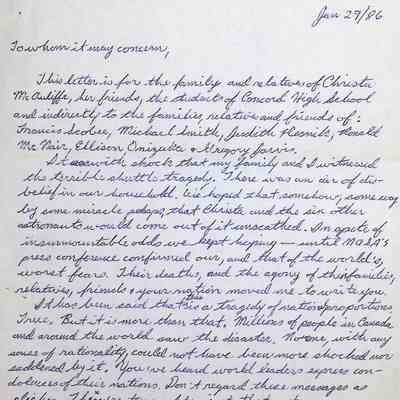 Jan 29/86
To whom it may concern,
This letter is for the family and relatives of Christa
McAuliffe, her friends, the students of Concord High School
and indirectly to the families, relative and friends of:
Francis Scobee, Michael Smith, Judith Resnik, Ronald
McNair, Ellison Onizuka & Gregory Jarvis.
It was with shock that my family and I witnessed
the terrible shuttle tragedy. There was an air of dis-
belief in our household. We hoped that somehow, some way
by some miracle pehaps, that Christa and the six other
astronauts would come out of it unscathed. In spite of
insurmountable odds we kept hoping — until NASA's
press conference confirmed our, and that of the world's,
worst fears. Their deaths, and the agony of their families,
relatives, friends & your nation moved me to write you.
It has been said that this is a tragedy of national proportions
True. But it is more than that. Millions of people in Canada
and around the world saw the disaster. No one, with any
sense of rationality, could not have been more shocked nor
saddened by it. You've heard world leaders express con-
dolences of their nations. Don't regard these messages as